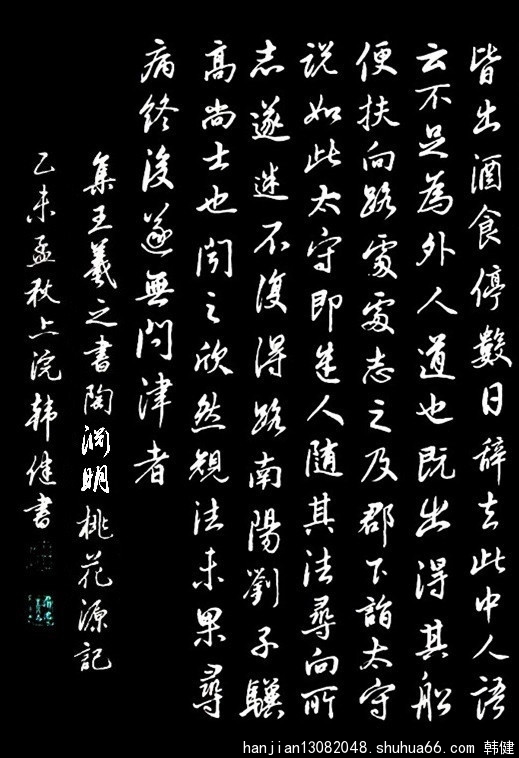 皆出酒食停數日辭去此中人語
云不足為外人道也既出得其船
便扶向路處處志之及郡下詣太守
說如此太守即遣人隨其往尋向所
志遂迷不復得路南陽劉子驥
高尚士也聞之欣然規往未果尋
病終後遂無問津者
集王羲之書陶淵明桃花源記
乙未孟秋上浣韩健書
hanjian13082048.shuhua66.com 韩健